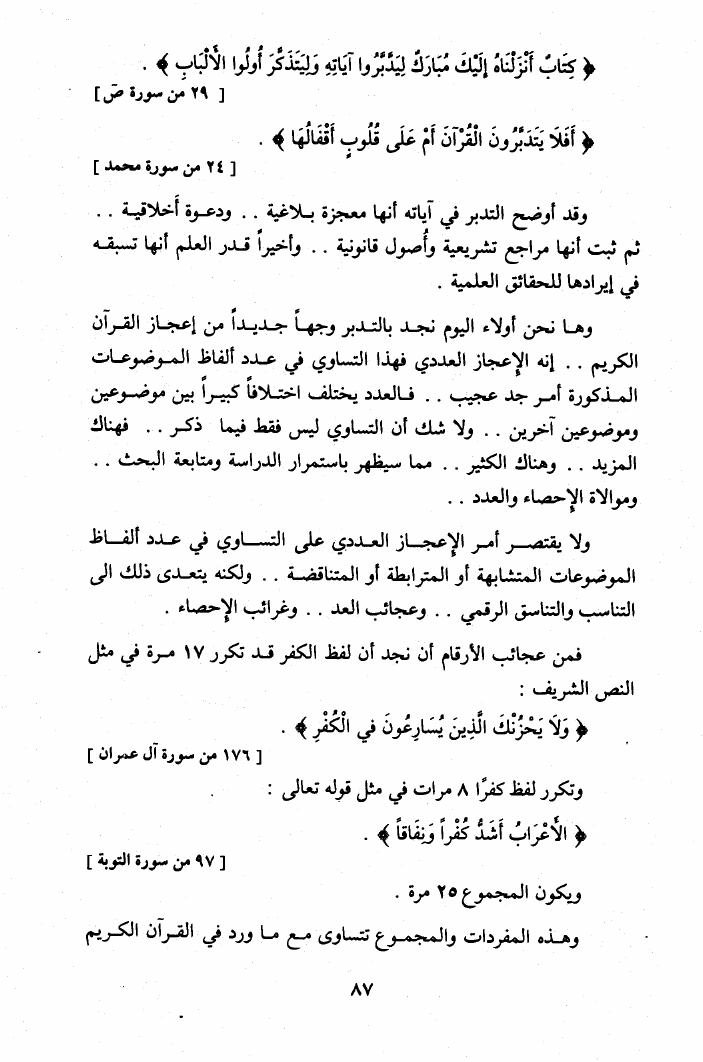 ﴿ كِتَابٌ أَنْزَلْنَاهُ إِلَيْكَ مُبَارَكٌ لِيَدَّبَّرُوا آيَاتِهِ وَلِيَتَذَكَّرَ أُولُوا الأَلْبَابِ ﴾ .
[ ٢٩ من سورة صَ ]
﴿ أَفَلَا يَتَدَبَّرُونَ الْقُرْآنَ أَمْ عَلَى قُلُوبٍ أَقْفَالُهَا ﴾ .
[ ٢٤ من سورة محمد ]
وقد أوضح التدبر في آياته أنها معجزة بلاغية . . ودعوة أخلاقية . .
ثم ثبت أنها مراجع تشريعية وأُصول قانونية . . وأخيراً قدر العلم أنها تسبقه
في إيرادها للحقائق العلمية .
وها نحن أولاء اليوم نجد بالتدبر وجهاً جديداً من إعجاز القرآن
الكريم . . إنه الإعجاز العددي فهذا التساوي في عدد ألفاظ الموضوعات
المذكورة أمر جد عجيب . . فالعدد يختلف اختلافاً كبيراً بين موضوعين
وموضوعين آخرين . . ولا شك أن التساوي ليس فقط فيما ذكر . . فهناك
المزيد . . وهناك الكثير . . مما سيظهر باستمرار الدراسة ومتابعة البحث . .
وموالاة الإحصاء والعدد . .
ولا يقتصر أمر الإعجاز العددي على التساوي في عدد ألفاظ
الموضوعات المتشابهة أو المترابطة أو المتناقضة . . ولكنه يتعدى ذلك الى
التناسب والتناسق الرقمي . . وعجائب العد . . وغرائب الإحصاء .
فمن عجائب الأرقام أن نجد أن لفظ الكفر قد تكرر ١٧ مرة في مثل
النص الشريف :
﴿ وَلَا يَحْزُنْكَ الَّذِينَ يُسَارِعُونَ في الْكُفْرِ ﴾ .
[ ١٧٦ من سورة آل عمران ]
وتكرر لفظ كفرًا ٨ مرات في مثل قوله تعالى :
﴿ الأَعْرَابُ أَشَدُّ كُفْراً وَنِفَاقاً ﴾ .
[ ٩٧ من سورة التوبة ]
ويكون المجموع ٢٥ مرة .
وهذه المفردات والمجموع تتساوى مع ما ورد في القرآن الكريم
٨٧